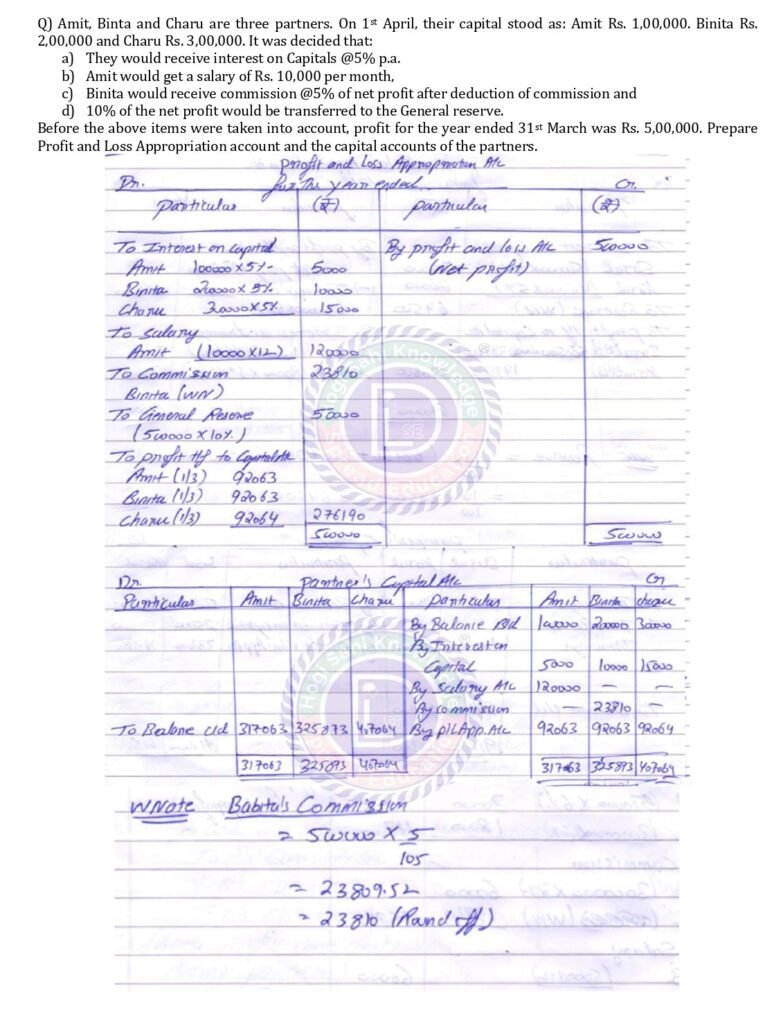 Q) Amit, Binta and Charu are three partners. On 1st April, their capital stood as: Amit Rs. 1,00,000. Binita Rs.
2,00,000 and Charu Rs. 3,00,000. It was decided that:
a) They would receive interest on Capitals @5% p.a.
b) Amit would get a salary of Rs. 10,000 per month,
c) Binita would receive commission @5% of net profit after deduction of commission and
d) 10% of the net profit would be transferred to the General reserve.
Before the above items were taken into account, profit for the year ended 31st March was Rs. 5,00,000. Prepare
Profit and Loss Appropriation account and the capital accounts of the partners.
Profit and Loss Appropriation A/c
Dr. for the year ended Cr.
Particulas (₹) particulas (₹)
To Interest on Capital By profit and loss A/c 500000
Amit 100000 x 5% 5000 (Net profit)
Binita 200000 x 5% 10000
Charu 300000 x 5% 15000
To Salary
Amit (10000 x 12) 120000
To Commission 23810
Binita (WN)
To General Reserve 50000
(500000 x 10%)
To profit t/f to Capital A/c
Amit (1/3) 92063
Binita (1/3) 92063
Charu (1/3) 92064 276190
500000 500000
Dr. Partner's Capital A/c Cr
Particulas Amit Binita Charu Particulas Amit Binita Charu
By Balance B/d 100000 200000 300000
By Interest on
Capital 5000 10000 15000
By Salary A/c 120000 — —
By Commission — 23810 —
To Balance c/d 317063 325873 407064 By P/L App. A/c 92063 92063 92064
317063 325873 407064 317063 325873 407064
WNote Babita's Commission
= 500000 x 5
105
= 23809.52
= 23810 (Rand off)